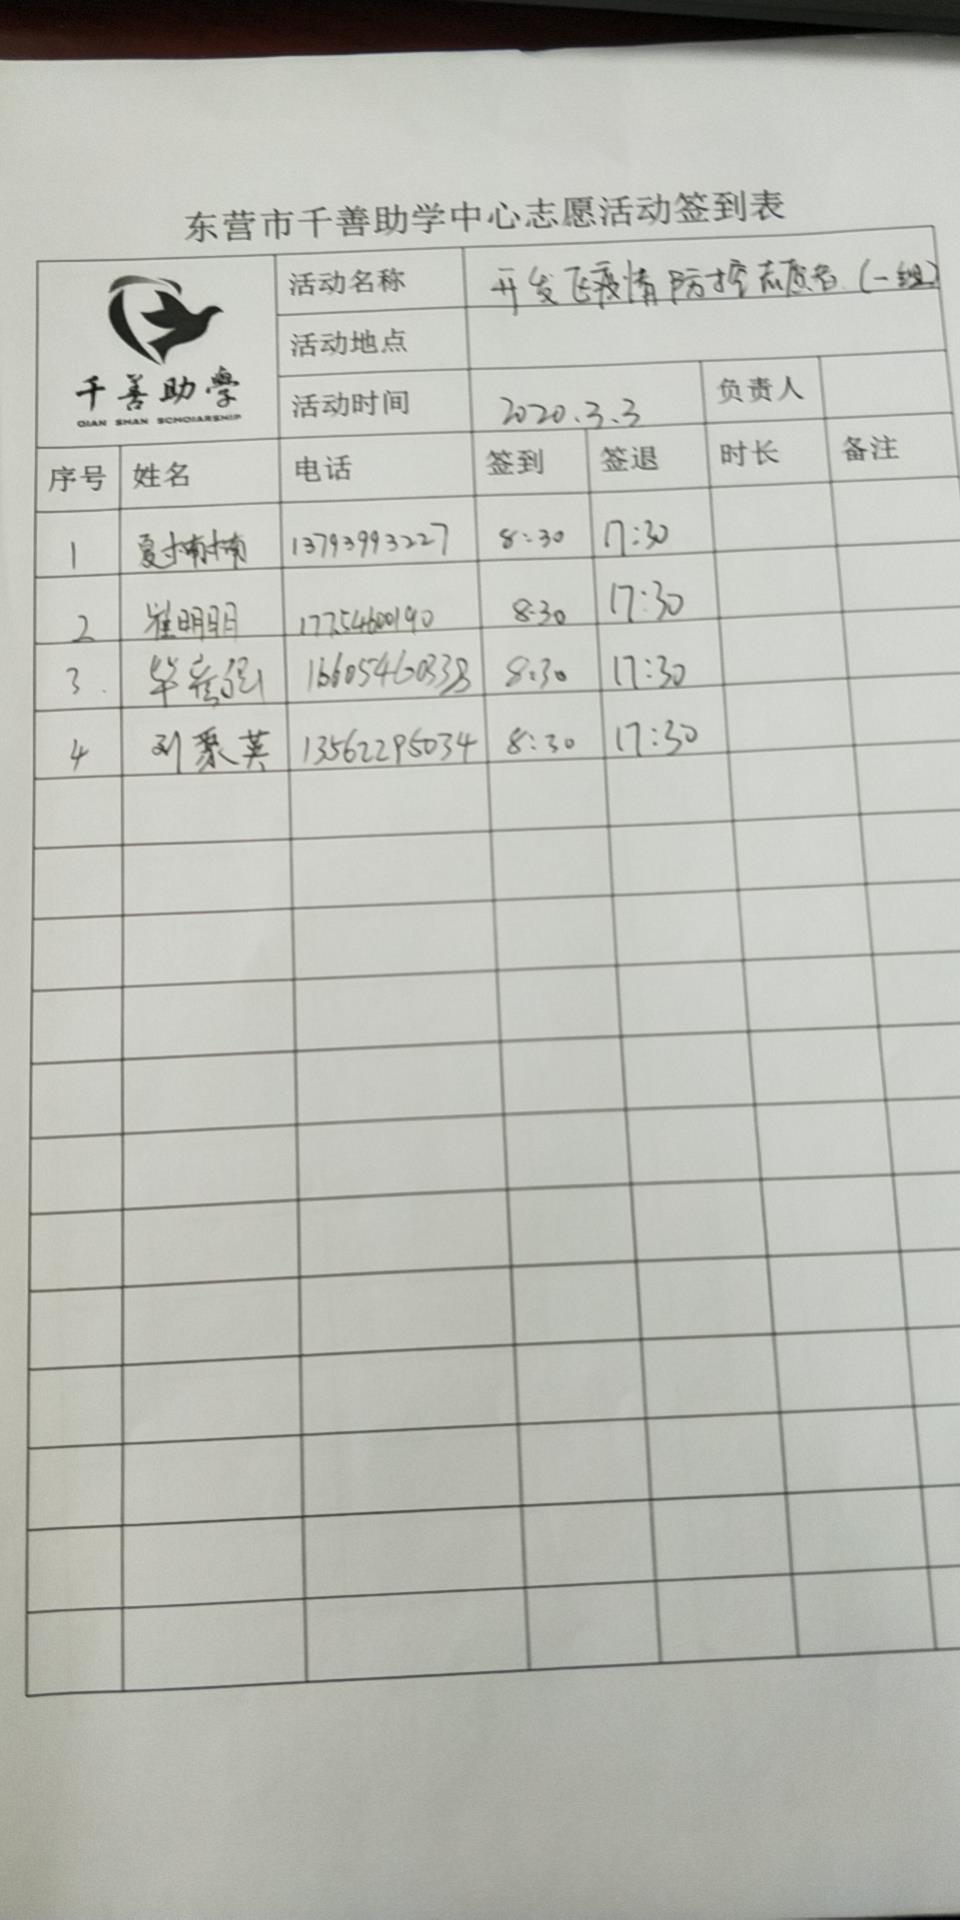 东营市千善助学中心志愿活动签到表
千善助学
QIAN SHAN SCHOLARSHIP
活动名称 开发区疫情防控志愿者(一组)
活动地点
活动时间 2020.3.3 负责人
序号 姓名 电话 签到 签退 时长 备注
1 夏楠楠 13793993227 8:30 17:30
2 崔明明 17754600190 8:30 17:30
3. 毕 16605460338 8:30 17:30
4 刘聚英 13562295034 8:30 17:30